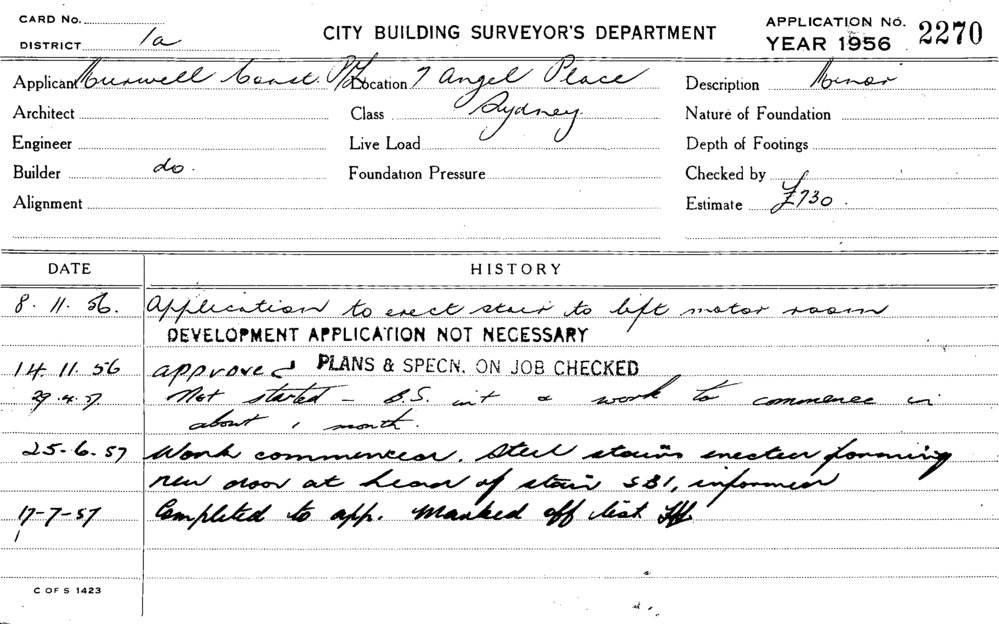 CARD No.
DISTRICT 1a
CITY BUILDING SURVEYOR'S DEPARTMENT
APPLICATION No. 2270
YEAR 1956
Applicant Const. P/L Location 7 Angel Place Description Minor
Architect Class Sydney. Nature of Foundation
Engineer Live Load Depth of Footings
Builder do. Foundation Pressure Checked by
Alignment Estimate £730.
DATE HISTORY
8. 11. 56. Application to erect stair to lift motor room
DEVELOPMENT APPLICATION NOT NECESSARY
14. 11. 56 approved PLANS & SPECN. ON JOB CHECKED
29.4.57. Not started - B.S. int & work to commence in
about 1 month.
25-6.57 Work commenced. Steel stairs erected forming
new door at head of stair SBI, informed
17-7-57 Completed to app. Marked off list
C OF S 1423